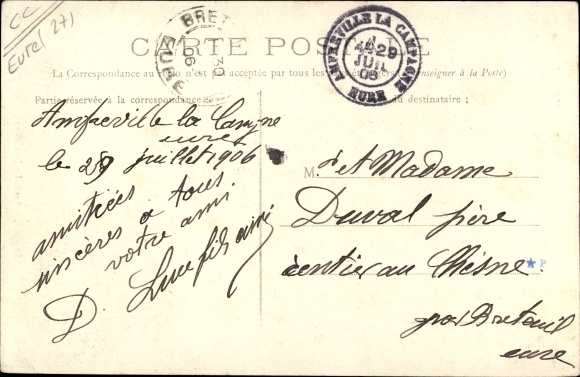 CC
Eure (271)
CARTE POSTALE
La Correspondance au recto n'est pas acceptée par tous les pays étrangers (Se renseigner à la Poste)
BRET
30
06
EURE
AMFREVILLE LA CAMPAGNE
29
JUIL
06
EURE
Partie réservée à la correspondance
du destinataire ;
Amfreville la Campagne
eure
le 29 juillet 1906
amitiées
sincères a tous
votre ami
D. Luce fils ainé
M. et Madame
Duval père
rentier au Chesne
par Breteuil
eure